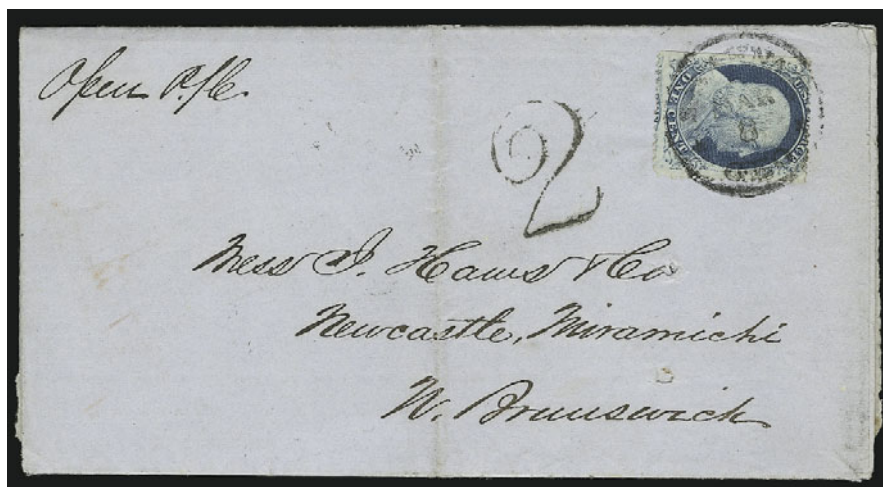 Open
2
Mess J. Haws & Co
Newcastle, Miramichi
N. Brunswick
MAR
8